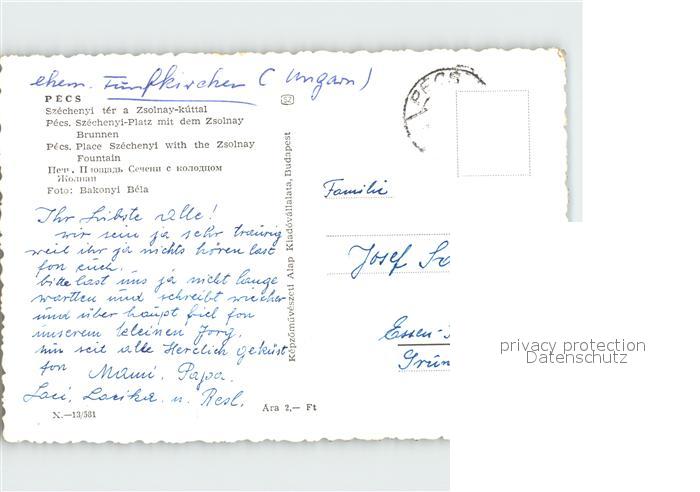 ehem. Fünfkirchen (Ungarn)
PÉCS
Széchenyi tér a Zsolnay-kúttal
Pécs. Széchenyi-Platz mit dem Zsolnay
Brunnen
Pécs. Place Széchenyi with the Zsolnay
Fountain
Печ. Площадь Сечени с колодном
Жолнаи
Foto: Bakonyi Béla
Ihr Liebste alle!
wir sein ja sehr traurig
weil ihr ja nichts hören last
fon euch.
bitte last uns ja nicht lange
wartten und schreibt wiecher
und über haupt fiel fon
unserem kleinen Jorg.
nun seit alle Herzlich geküst
fon Mami, Papa.
Laci, Lacika u. Resl.
N.—13/581
Ára 2,— Ft
Képzőművészeti Alap Kiadóvállalata, Budapest
PÉCS
Familie
Josef
Essen-
Grün
privacy protection
Datenschutz